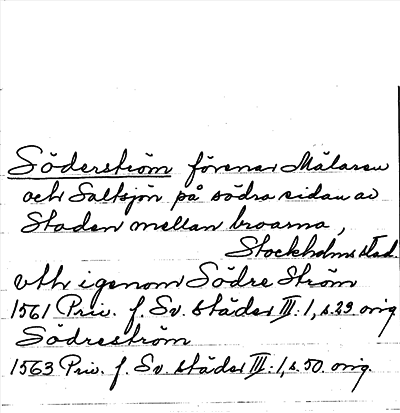 Söderström förenar Mälaren
och Saltsjön på södra sidan av
Staden mellan broarna,
Stockholms stad.
vth igenom Södre Ström
1561 Priv. f. Sv. städer III:1, s. 29. orig
Södreström
1563 Priv. f. Sv. städer III:1, s. 50. orig.